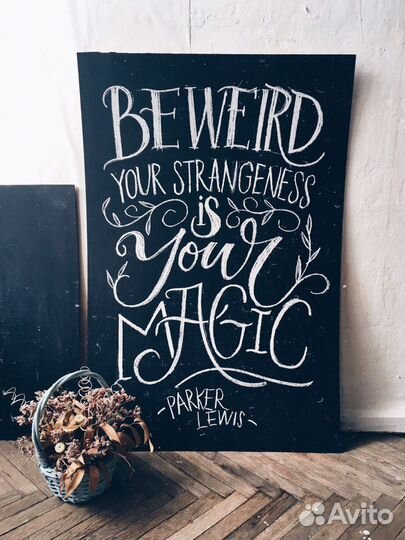 BE WEIRD
YOUR STRANGENESS
is
your
MAGIC
- PARKER
LEWIS -
Avito